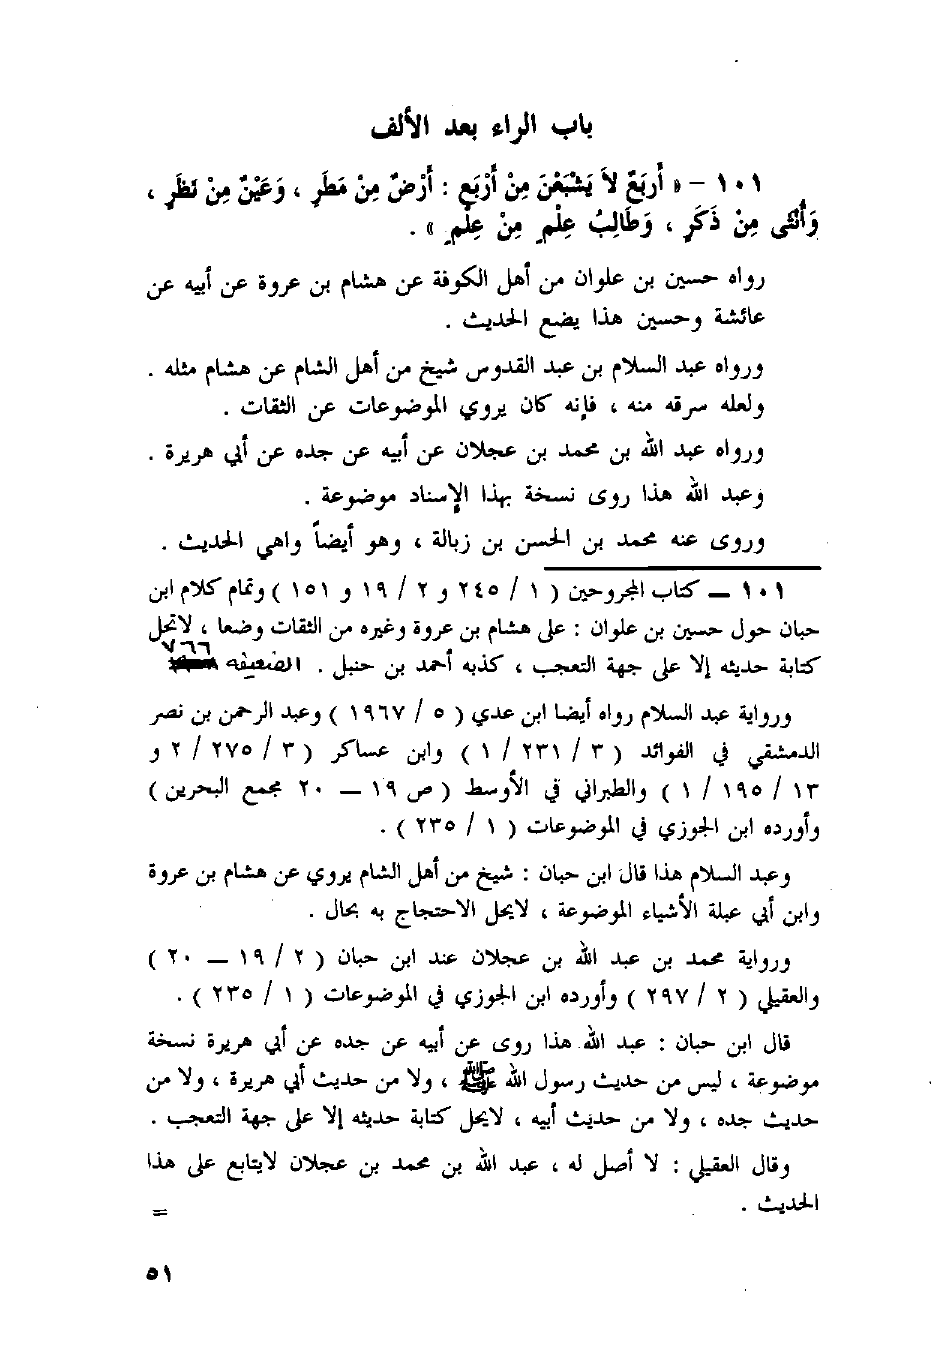 باب الراء بعد الألف
١٠١ - « أَربَعٌ لاَ يَشْبَعْنَ مِنْ أَرْبَعٍ : أَرْضٌ مِنْ مَطَرٍ ، وَعَيْنٌ مِنْ نَظَرٍ ،
وَأُنْثَى مِنْ ذَكَرٍ ، وَطَالِبُ عِلْمٍ مِنْ عِلْمٍ » .
رواه حسين بن علوان من أهل الكوفة عن هشام بن عروة عن أبيه عن
عائشة وحسين هذا يضع الحديث .
ورواه عبد السلام بن عبد القدوس شيخ من أهل الشام عن هشام مثله .
ولعله سرقه منه ، فإنه كان يروي الموضوعات عن الثقات .
ورواه عبد الله بن محمد بن عجلان عن أبيه عن جده عن أبي هريرة .
وعبد الله هذا روى نسخة بهذا الإسناد موضوعة .
وروى عنه محمد بن الحسن بن زبالة ، وهو أيضاً واهي الحديث .
١٠١ — كتاب المجروحين ( ١ / ٢٤٥ و ٢ / ١٩ و ١٥١ ) وتمام كلام ابن
حبان حول حسين بن علوان : على هشام بن عروة وغيره من الثقات وضعا ، لاتحل
كتابة حديثه إلا على جهة التعجب ، كذبه أحمد بن حنبل . الضعيفه ٧٦٦
ورواية عبد السلام رواه أيضا ابن عدي ( ٥ / ١٩٦٧ ) وعبد الرحمن بن نصر
الدمشقي في الفوائد ( ٣ / ٢٣١ / ١ ) وابن عساكر ( ٣ / ٢٧٥ / ٢ و
١٣ / ١٩٥ / ١ ) والطبراني في الأوسط ( ص ١٩ — ٢٠ مجمع البحرين )
وأورده ابن الجوزي في الموضوعات ( ١ / ٢٣٥ ) .
وعبد السلام هذا قال ابن حبان : شيخ من أهل الشام يروي عن هشام بن عروة
وابن أبي عبلة الأشياء الموضوعة ، لايحل الاحتجاج به بحال .
ورواية محمد بن عبد الله بن عجلان عند ابن حبان ( ٢ / ١٩ — ٢٠ )
والعقيلي ( ٢ / ٢٩٧ ) وأورده ابن الجوزي في الموضوعات ( ١ / ٢٣٥ ) .
قال ابن حبان : عبد الله هذا روى عن أبيه عن جده عن أبي هريرة نسخة
موضوعة ، ليس من حديث رسول الله ﷺ ، ولا من حديث أبي هريرة ، ولا من
حديث جده ، ولا من حديث أبيه ، لايحل كتابة حديثه إلا على جهة التعجب .
وقال العقيلي : لا أصل له ، عبد الله بن محمد بن عجلان لايتابع على هذا
الحديث .
=
٥١